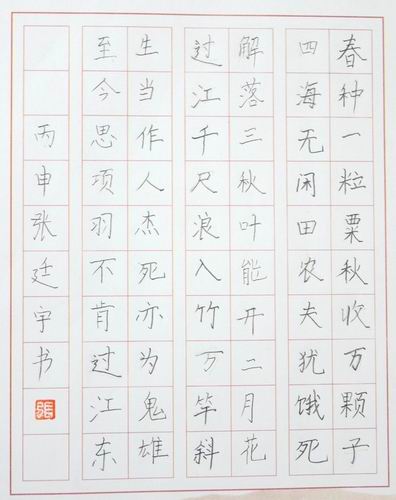 春种一粒粟秋收万颗子
四海无闲田农夫犹饿死
解落三秋叶能开二月花
过江千尺浪入竹万竿斜
生当作人杰死亦为鬼雄
至今思项羽不肯过江东
丙申张廷宇书
張